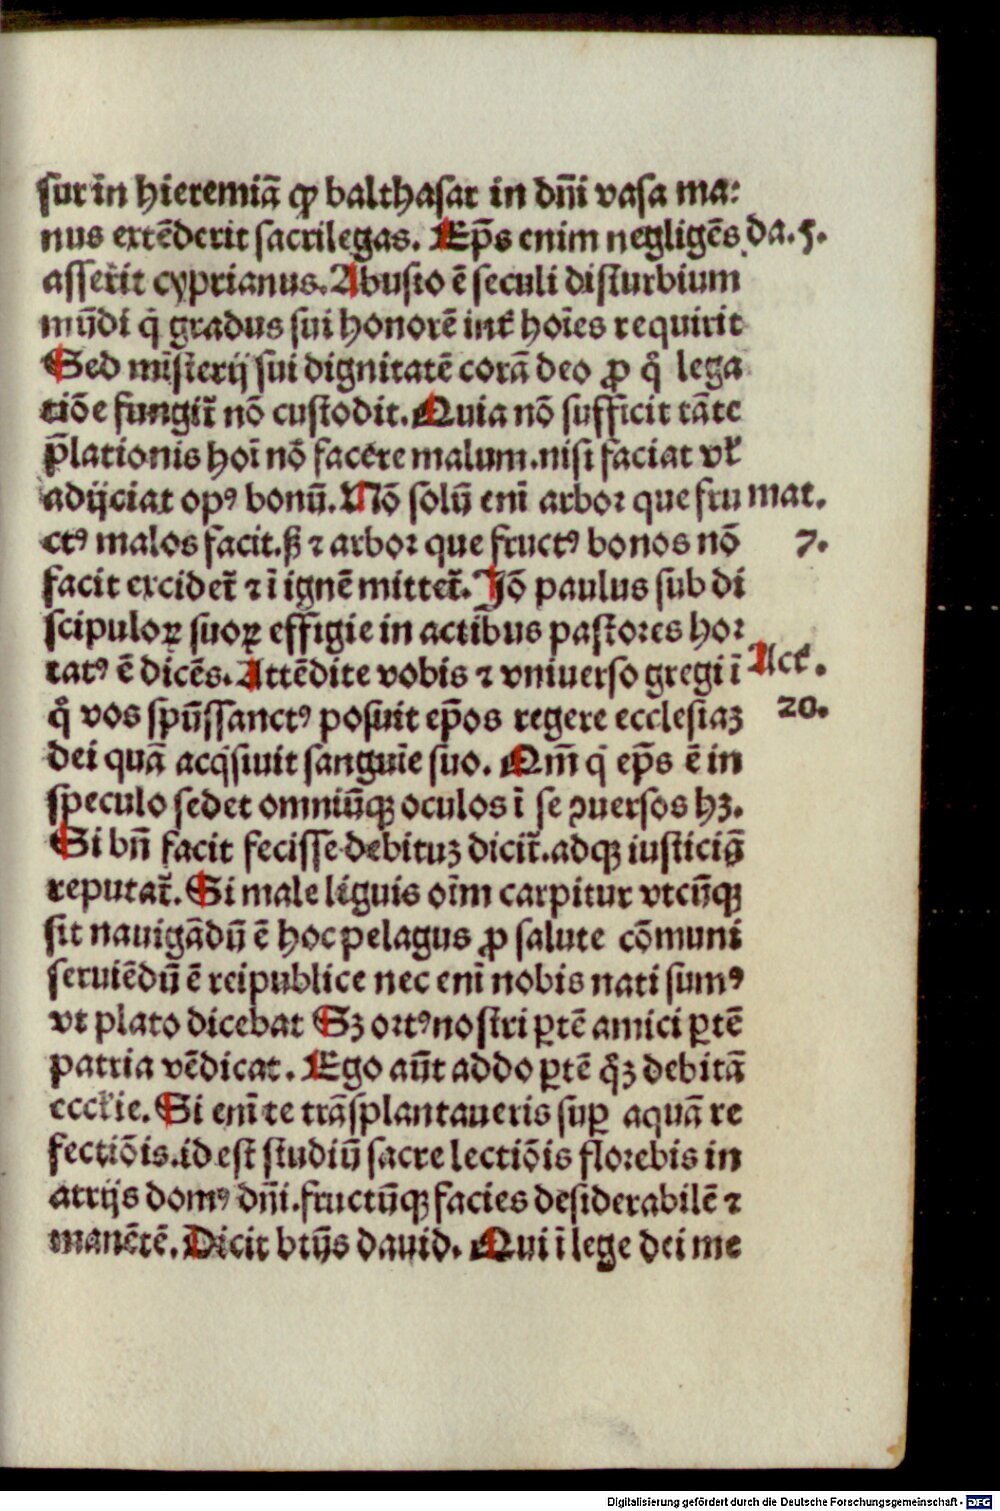 sur in hieremiã ꝙ balthasar in dñi vasa ma:
nus extẽderit sacrilegas. Ep̃s enim negligẽs da. 5.
asserit cyprianus. Abusio ẽ seculi disturbium
mũdi q̃ gradus sui honorẽ int̃ hoĩes requirit
Sed mĩsterij sui dignitatẽ corã deo ꝓ q̃ lega
tiõe fungit̃ nõ custodit. Quia nõ sufficit tãte
p̃lationis hoĩ nõ facere malum. nisi faciat vł
adijciat opꝰ bonũ. Nõ solũ enĩ arbor que fru mat.
ctꝰ malos facit. ß ⁊ arbor que fructꝰ bonos nõ 7.
facit excidet̃ ⁊ ĩ ignẽ mittet̃. Jõ paulus sub di
scipuloꝝ suoꝝ effigie in actibus pastores hor
tatꝰ ẽ dicẽs. Attẽdite vobis ⁊ vniuerso gregi ĩ Act̃.
q̃ vos spũssanctꝰ posuit ep̃os regere ecclesiaꝫ 20.
dei quã acq̃siuit sanguĩe suo. Qm̃ q̃ ep̃s ẽ in
speculo sedet omniũqꝫ oculos ĩ se ꝯuersos hꝫ.
Si bñ facit fecisse debituꝫ dicit̃. adqꝫ iusticiã
reputat̃. Si male lĩguis oĩm carpitur vtcũqꝫ
sit nauigãdũ ẽ hoc pelagus ꝓ salute cõmuni
seruiẽdũ ẽ reipublice nec enĩ nobis nati sumꝰ
vt plato dicebat Sꝫ ortꝰ nostri ꝑtẽ amici ꝑtẽ
patria vẽdicat. Ego aũt addo ꝑtẽ q̃ꝫ debitã
eccl̃ie. Si enĩ te trãsplantaueris suꝑ aquã re
fectiõis. id est studiũ sacre lectiõis florebis in
atrijs domꝰ dñi. fructũqꝫ facies desiderabilẽ ⁊
manẽtẽ. Dicit bt̃ijs dauid. Qui ĩ lege dei me
Digitalisierung gefördert durch die Deutsche Forschungsgemeinschaft - DFG